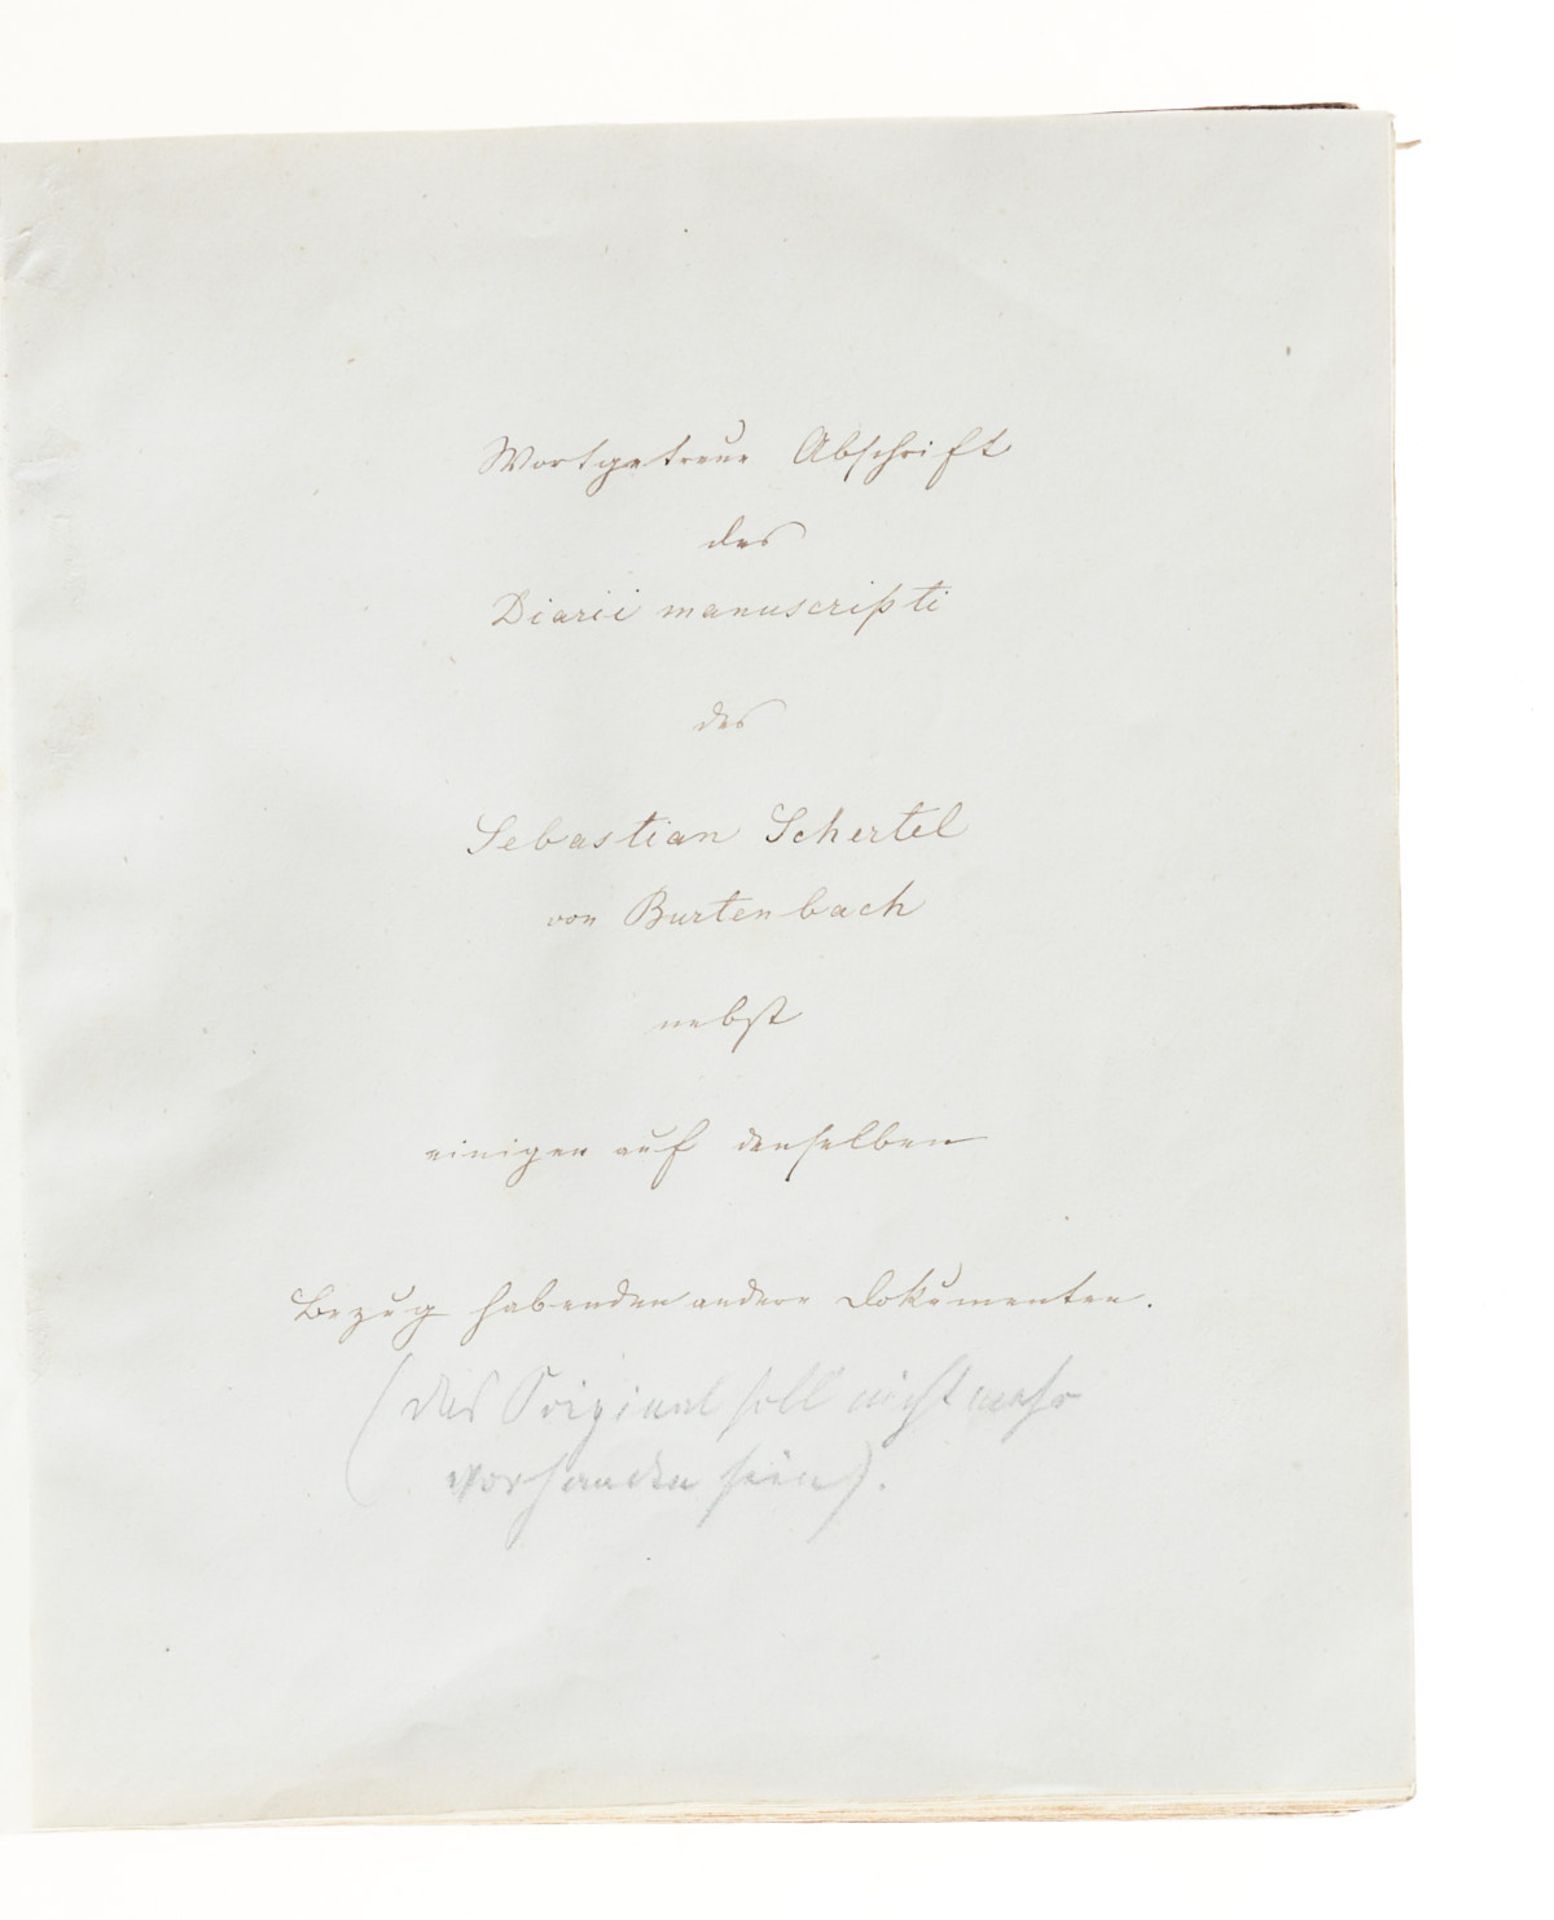 Wortgetreue Abschrift
des
Diarii manuscripti
des
Sebastian Schertel
von Burtenbach
nebst
einigen auf denselben
Bezug habenden andere Dokumenten.
(das Original soll nicht mehr
vorhanden sein).